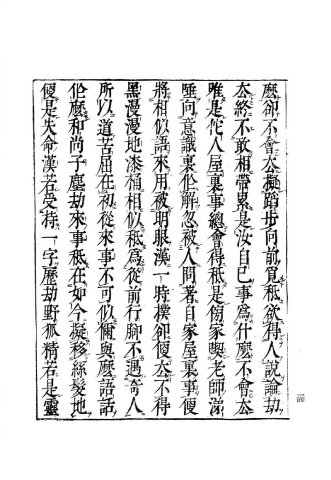 麽卻不會去擬蹈步向前覓秪欲得人說論劫
去終不敢相帶累是汝自己事爲什麽不會去
唯是佗人屋裏事總會得秪是傍家喫老師涕
唾向意識裏作解忽被人問著自家屋裏事便
將相似語來用被明眼漢一時撲卻便去不得
黑漫漫地漆桶相似秪爲從前行腳不遇奇人
所以道苦屈在初從來事不可似儞與麽語話
佗麽和尚子塵劫來事秪在如今擬移絲髮地
便是失命漢若受持一字歷劫野狐精若是靈